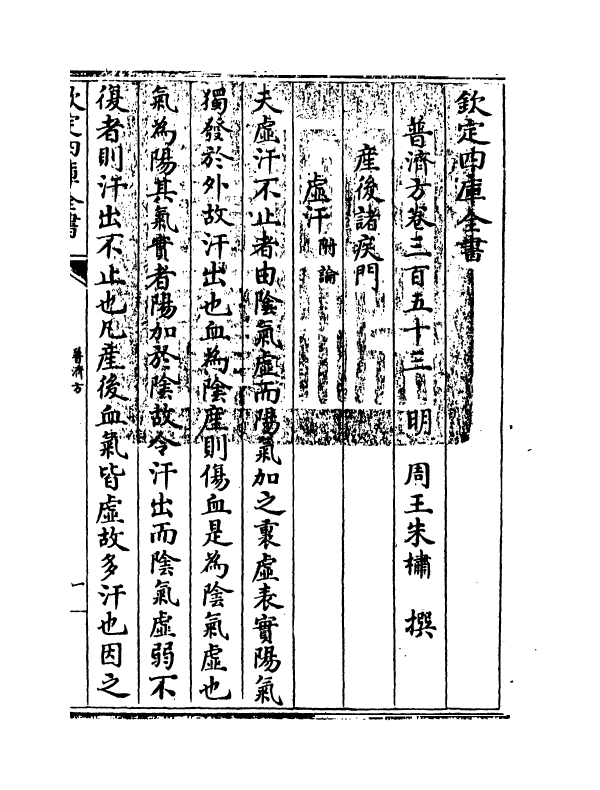 欽定四庫全書
普濟方卷三百五十三 明 周王朱橚 撰
産後諸疾門
虛汗附論
夫虛汗不止者由陰氣虛而陽氣加之裏虛表實陽氣
獨發於外故汗出也血為陰産則傷血是為陰氣虛也
氣為陽其氣實者陽加於陰故令汗出而陰氣虛弱不
復者則汗出不止也凡産後血氣皆虛故多汗也因之
欽定四庫全書
普濟方
一